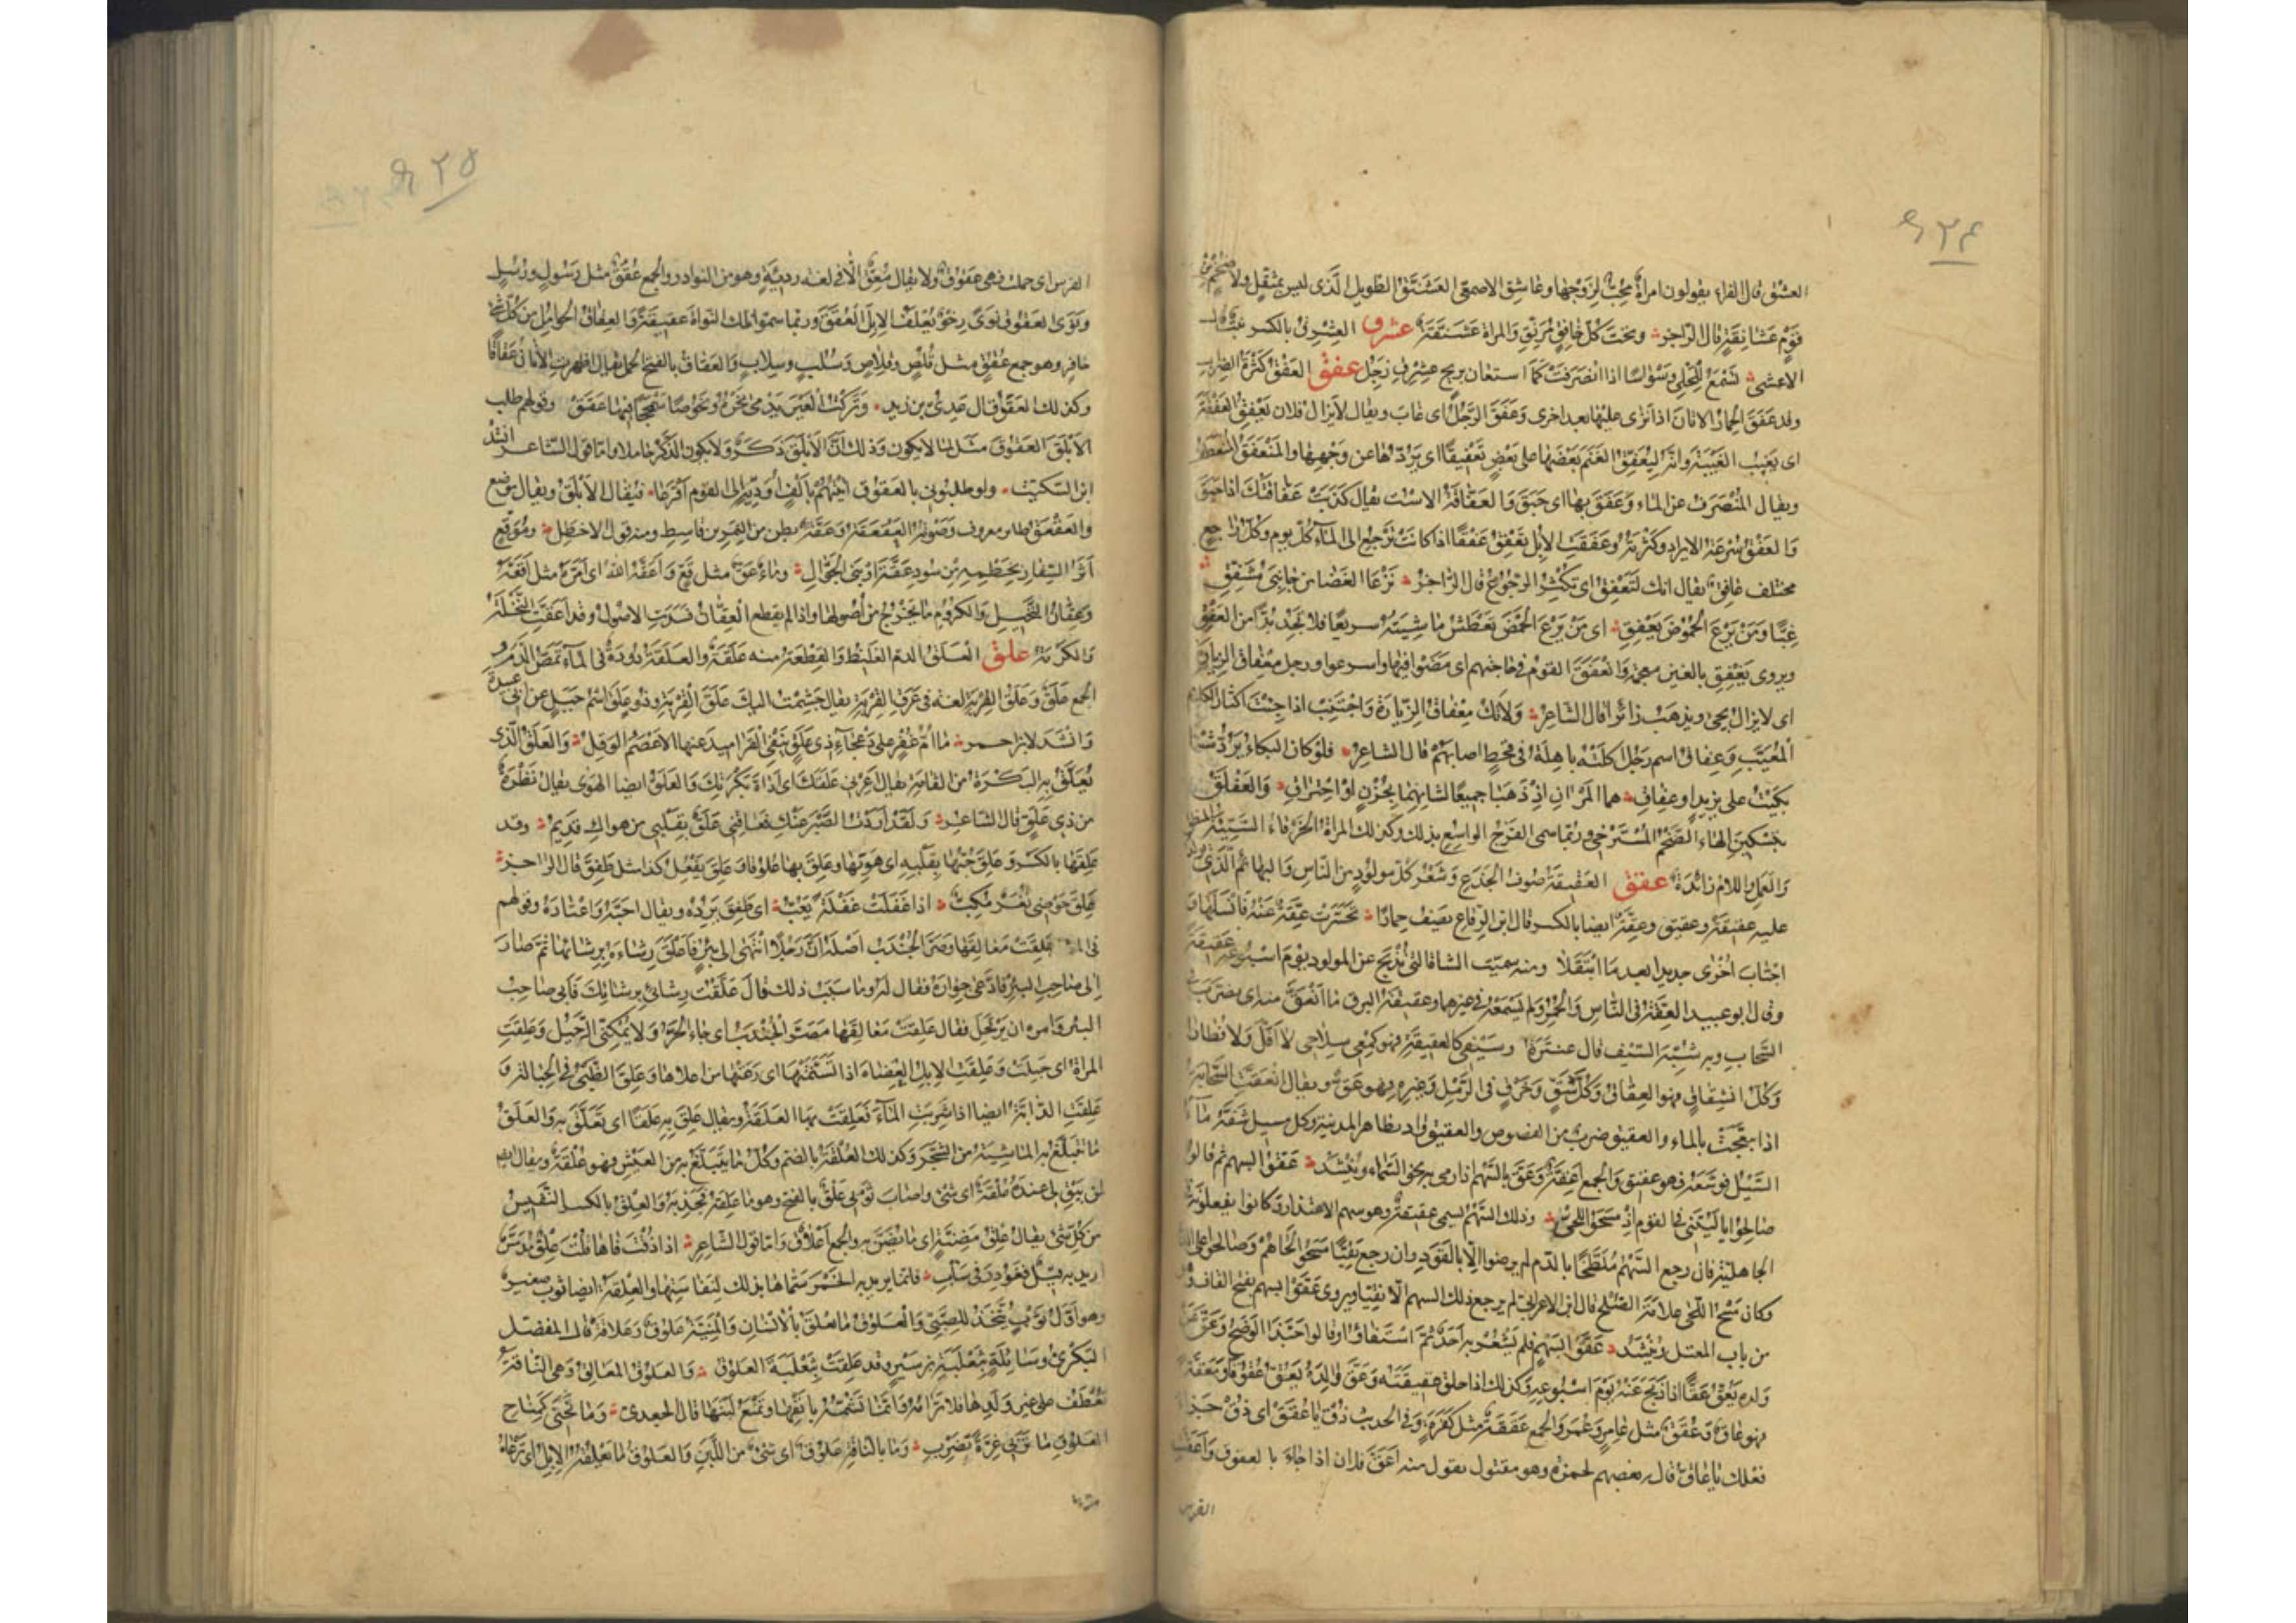 ٤٢٤
العشق قال الفراء يقولون امراة محب لزوجها وعاشق الاصمعي العشنق الطويل الذي ليس بمثقل ولا ضخم من
قوم عشانقة قال الراجز وتحت كل خافق مرنق والمراة عشنقة عشرق العشرق بالكسر نبت قال
الاعشى تسمع للحلي وسواسا اذا انصرفت كما استعان بريح عشرق زجل عفق العفق كثرة الضراب
وقد عفق الحمار الاتان اذا نزى عليها بعد اخرى وعفق الرجل اى غاب ويقال لا يزال فلان يعفق العفقة
اى يغيب الغيبة وانه ليعفق الغنم بعضها على بعض تعفيقا اى يردها عن وجهها والمنعفق المنعطف
ويقال المنصرف عن الماء وعفق بها اى حبق والعفاقة الاست يقال كذبت عفاقتك اذا حبق
والعفق سرعة الايراد وكثرته وعفقت الابل تعفق عفقا اذا كانت ترجع الى الماء كل يوم وكل راجع
مختلف عافق يقال انك لتعفق اى تكثر الرجوع قال الراجز نرعا الغضا من جانبي مشفق
غبا ومن يرع الحموض يعفق اى من يرع الحمض تعطش ماشيته سريعا فلا يجد بدا من العفق
ويروى يغفق بالغين معجمة وانعفق القوم في حاجتهم اى مضوا فيها واسرعوا ورجل معفاق الزيارة
اى لا يزال يجى ويذهب زائرا قال الشاعر ولا تك معفاق الزيارة واجتنب اذا جئت اكثار الكلام
المعيب وعفاق اسم رجل اكلته باهلة في قحط اصابهم قال الشاعر فلو كان البكاء يرد شيئا
بكيت على يزيد او عفاق هما المرءان اذ ذهبا جميعا لشانهما بحزن او احتراق والعفلق
بتسكين الفاء الضخم المسترخي وربما سمى الفرج الواسع بذلك وكذلك المراة الخرقاء السيئة المنطق
والعمل واللام زائدة عقق العقيقة صوف الجذع وشعر كل مولود من الناس والبهائم الذي يولد
عليه عقيقة وعقيق وعقة ايضا بالكسر قال ابن الرقاع يصف حمارا تحسرت عقة عنه فانسلها
اجتاب اخرى جديدا بعد ما ابتقلا ومنه سميت الشاة التي تذبح عن المولود يوم اسبوعه عقيقة
وقال ابو عبيد العقة في الناس والحمر ولم يسمعه في غيرهما وعقيقة البرق ما انعق منه اى تضرب في
السحاب وبه شبه السيف قال عنترة وسيفي كالعقيقة فهو كمعي سلاحي لا اقل ولا فطارا
وكل انشقاق فهو انعقاق وكل شق وخرق في الرمل وغيره فهو عق ويقال انعقت السحابة
اذا تبعجت بالماء والعقيق ضرب من الفصوص والعقيق واد بظاهر المدينة وكل مسيل شقه ماء
السيل فوسعه فهو عقيق والجمع اعقة وعق بالسهم اذا رمى به نحو السماء وينشد عقوا بسهم ثم قالوا
صالحوا يا ليتني في القوم اذ مسحوا اللحى وذلك السهم يسمى عقيقة وهو سهم الاعتذار وكانوا يفعلونه في
الجاهلية فان رجع السهم ملطخا بالدم لم يرضوا الا بالقود وان رجع نقيا مسحوا لحاهم وصالحوا على الدية
وكان مسح اللحى علامة الصلح قال ابن الاعرابي لم يرجع ذلك السهم الا نقيا ويروى عقوا بسهم بفتح القاف وهو
من باب المعتل وينشد عقوا بسهم فلم يشعر به احد ثم استفاؤا وقالوا حبذا الوضح وعق عن
ولده يعق عقا اذا ذبح عنه يوم اسبوعه وكذلك اذا حلق عقيقته وعق والده يعق عقوقا ومعقة
فهو عاق وعقق مثل عامر وعمر والجمع عققة مثل كفرة وفي الحديث ذق يا عقق اى ذق جزاء
فعلك يا عاق قال بعضهم لحمزة وهو مقتول يقول منه اعق فلان اذا جاء بالعقوق واعقت
الفرس
٤٢٥
الفرس اى حملت فهي عقوق ولا يقال معق الا في لغة رديئة وهو من النوادر والجمع عقق مثل رسول ورسل
ونوى العقوق نوى رخو تعلفه الابل العقق وربما سموا تلك النواة عقيقة والعقاق الحوامل من كل ذات
حافر وهو جمع عقق مثل قلص وقلاص وسلب وسلاب والعقاق بالفتح الحمل يقال اظهرت الاتان عقاقا
وكذلك العقق قال عدي بن زيد وتركت العير يدمى نحره ونحوصا سمحجا فيها عقق وقولهم طلب
الابلق العقوق مثل لما لا يكون وذلك ان الابلق ذكر ولا يكون الذكر حاملا واما قول الشاعر انشد
ابن السكيت ولو طلبوني بالعقوق اتيتهم بالف اوديه الى القوم اقرعا فيقال الابلق ويقال موضع
والعقعق طائر معروف وصوته العقعقة وعقة بطن من النمر بن قاسط ومنه قول الاخطل وموقع
اثر السفار بخطمه من سود عقة او بني الجوال وماء عق مثل قع واعقه الله اى امره مثل اقعه
وعقان النخيل والكروم ما يخرج من اصولها واذا لم يقطع العقان فسدت الاصول وقد اعقت النخلة
والكرمة علق العلق الدم الغليظ والقطعة منه علقة والعلقة دودة في الماء تمص الدم و
الجمع علق وعلق القربة لغة في عرق القربة يقال جشمت اليك علق القربة وذو علق اسم جبل عن ابي عبيدة
وانشد لابن احمر ما ام غفر على دعجاء ذي علق ينفي القراميد عنها الاعصم الوقل والعلق الذي
تعلق به البكرة من القامة يقال اعرني علقك اى اداة بكرتك والعلق ايضا الهوى يقال نظرة
من ذي علق قال الشاعر ولقد اردت الصبر عنك فعاقني علق بقلبي من هواك قديم وقد
علقها بالكسر وعلق حبها بقلبه اى هويها وعلق بها علوقا وعلق يفعل كذا مثل طفق قال الراجز
علق حوضي نغر مكب اذا غفلت غفلة يعب اى طفق يرده ويقال احبه واعتاده وقولهم
في المثل علقت معالقها وصر الجندب اصله ان رجلا انتهى الى بئر فاعلق رشاءه برشائها ثم صار
الى صاحب البئر فادعى جواره فقال له وما سبب ذلك قال علقت رشائي برشائك فابى صاحب
البئر وامره ان يرتحل فقال علقت معالقها وصر الجندب اى جاء الحر ولا يمكنني الرحيل وعلقت
المراة اى حبلت وعلقت الابل العضاه اذا تسنمتها اى رعتها من اعلاها وعلق الظبي في الحبالة و
علقت الدابة ايضا اذا شربت الماء فعلقت بها العلقة ويقال علق به علقا اى تعلق به والعلق
ما تتبلغ به الماشية من الشجر وكذلك العلقة بالضم وكل ما يتبلغ به من العيش فهو علقة ويقال
لم يبق لي عنده علقة اى شئ واصاب ثوبي علق بالفتح وهو ما علقه فجذبه والعلق بالكسر النفيس
من كل شئ يقال علق مضنة اى ما يضن به والجمع اعلاق واما قول الشاعر اذا ذقت فاها قلت علق مدمس
اريد به قيل فغودر في ساب فانما يريد به الخمر سماها بذلك لنفاستها والعلقة ايضا ثوب صغير
وهو اول ثوب يتخذ للصبي والعلوق ما يعلق بالانسان والمنية علوق وعلاقة قال المفضل
البكري وسائلة بثعلبة بن سير وقد علقت بثعلبة العلوق والعلوق المعالق وهى الناقة
تعطف على غير ولدها فلا ترامه وانما تشمه بانفها وتمنع لبنها قال الجعدي وما نحني كمناح
العلوق ما تر بي غرة تضرب وما بالناقة علوق اى شئ من اللبن والعلوق ما تعلقه الابل اى ترعاه